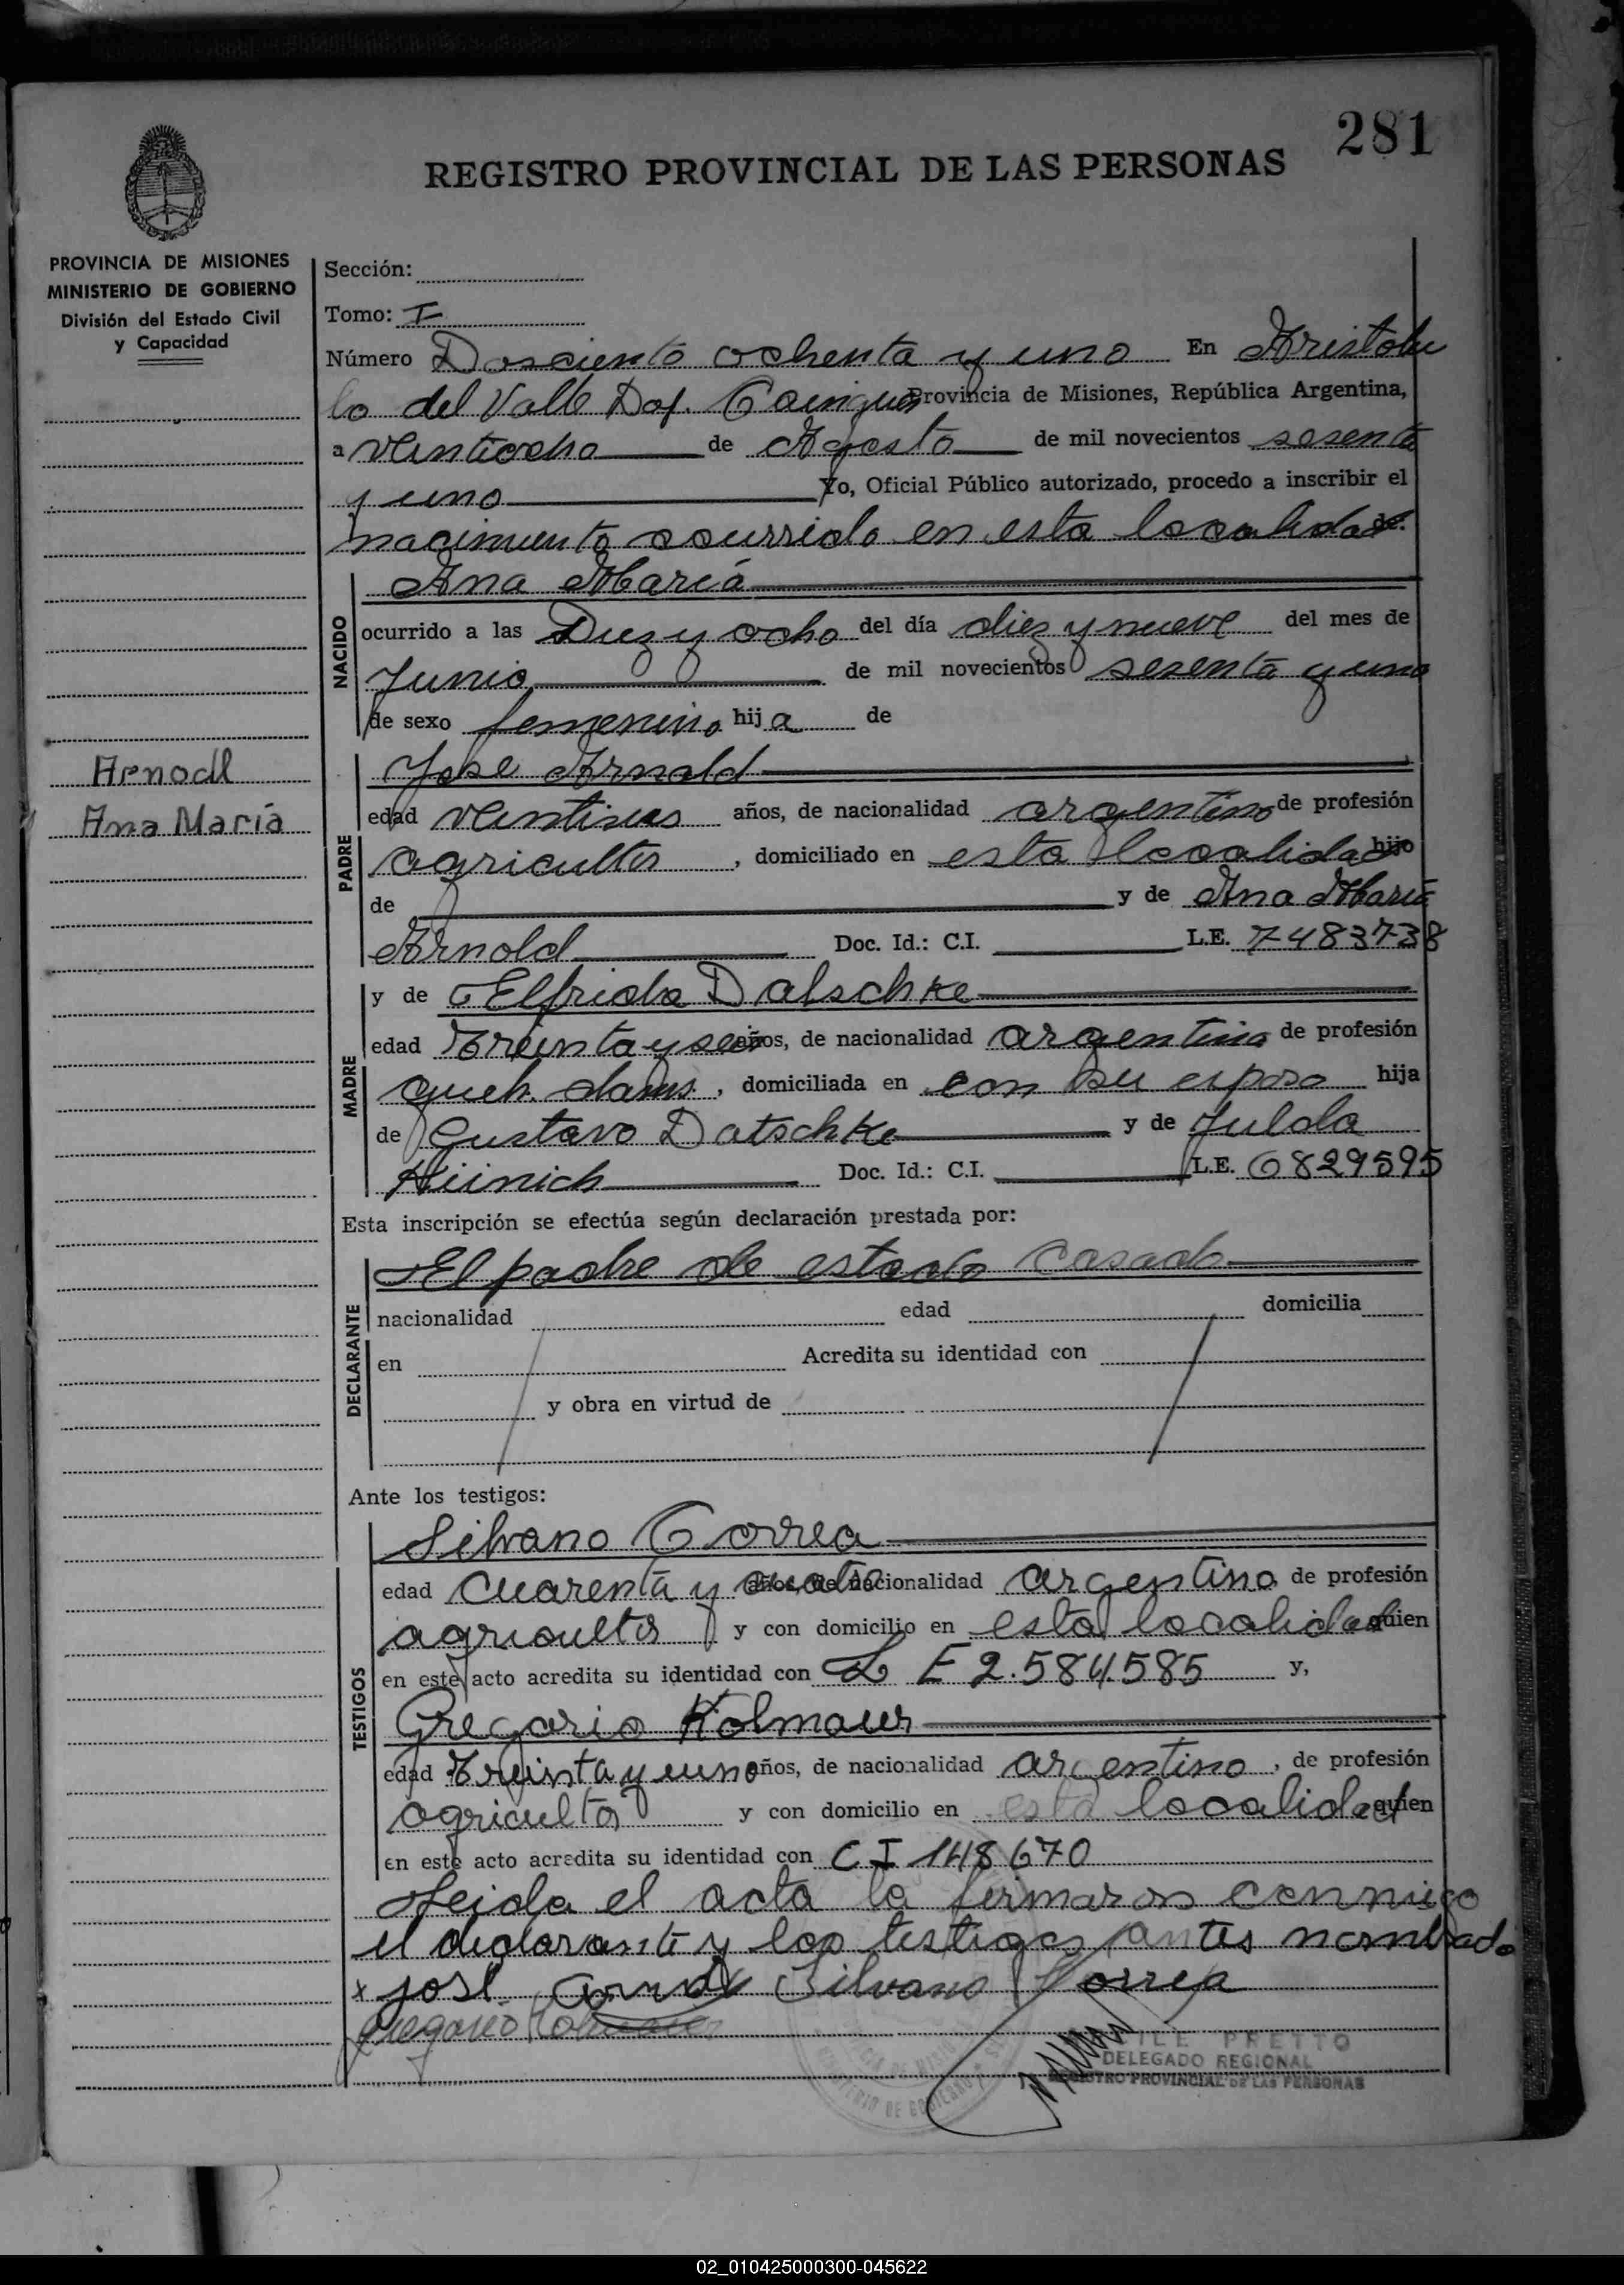 281
REGISTRO PROVINCIAL DE LAS PERSONAS
PROVINCIA DE MISIONES
MINISTERIO DE GOBIERNO
División del Estado Civil
y Capacidad
Sección:
Tomo: I
Número Dosciento ochenta y uno En Aristobu
lo del Valle Dep. Cainguas Provincia de Misiones, República Argentina,
a veintiocho de Agosto de mil novecientos sesenta
y uno Yo, Oficial Público autorizado, procedo a inscribir el
nacimiento ocurrido en esta localidad de:
NACIDO
Ana María
ocurrido a las Diez y ocho del día diez y nueve del mes de
Junio de mil novecientos sesenta y uno
de sexo femenino hija de
Arnodl
Ana María
PADRE
Jose Arnold
edad años, de nacionalidad argentino de profesión
agricultor, domiciliado en esta localidad hijo
de y de Ana María
Arnold Doc. Id.: C.I. L.E. 7483738
MADRE
y de Elfrida Datschke
edad Treinta y seis años, de nacionalidad argentina de profesión
queh. doms., domiciliada en con su esposo hija
de Gustavo Datschke y de Julda
Doc. Id.: C.I. L.E. 6829595
Esta inscripción se efectúa según declaración prestada por:
DECLARANTE
El padre de estado casado
nacionalidad edad domicilia
en Acredita su identidad con
y obra en virtud de
Ante los testigos:
TESTIGOS
Silvano Correa
edad cuarenta y cuatro años, de nacionalidad argentino de profesión
agricultor y con domicilio en esta localidad quien
en este acto acredita su identidad con L E 2.584.585 y,
Gregorio Kolmaier
edad Treinta y uno años, de nacionalidad argentino, de profesión
agricultor y con domicilio en esta localidad quien
en este acto acredita su identidad con C I 148670
Leida el acta la firmaron conmigo
el declarante y los testigos antes nombrado
x José Silvano Correa
Gregorio
PRETTO
DELEGADO REGIONAL
REGISTRO PROVINCIAL DE LAS PERSONAS
02_010425000300-045622